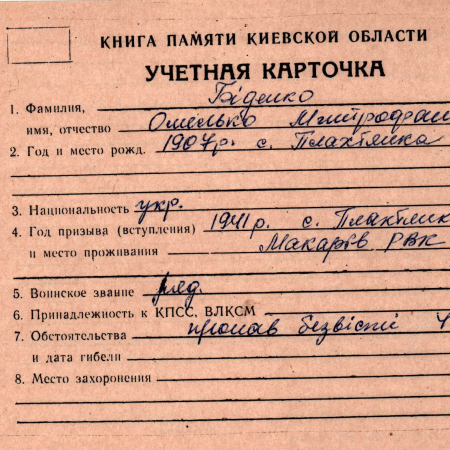 КНИГА ПАМЯТИ КИЕВСКОЙ ОБЛАСТИ
УЧЕТНАЯ КАРТОЧКА
1. Фамилия, Біденко
имя, отчество Омелько Митрофан
2. Год и место рожд. 1907р. с. Плахтянка
3. Национальность укр.
4. Год призыва (вступления) 1941 р. с. Плахтянк
и место проживания Макарів РВК
5. Воинское звание ряд.
6. Принадлежность к КПСС, ВЛКСМ
7. Обстоятельства пропав безвісті
и дата гибели
8. Место захоронения